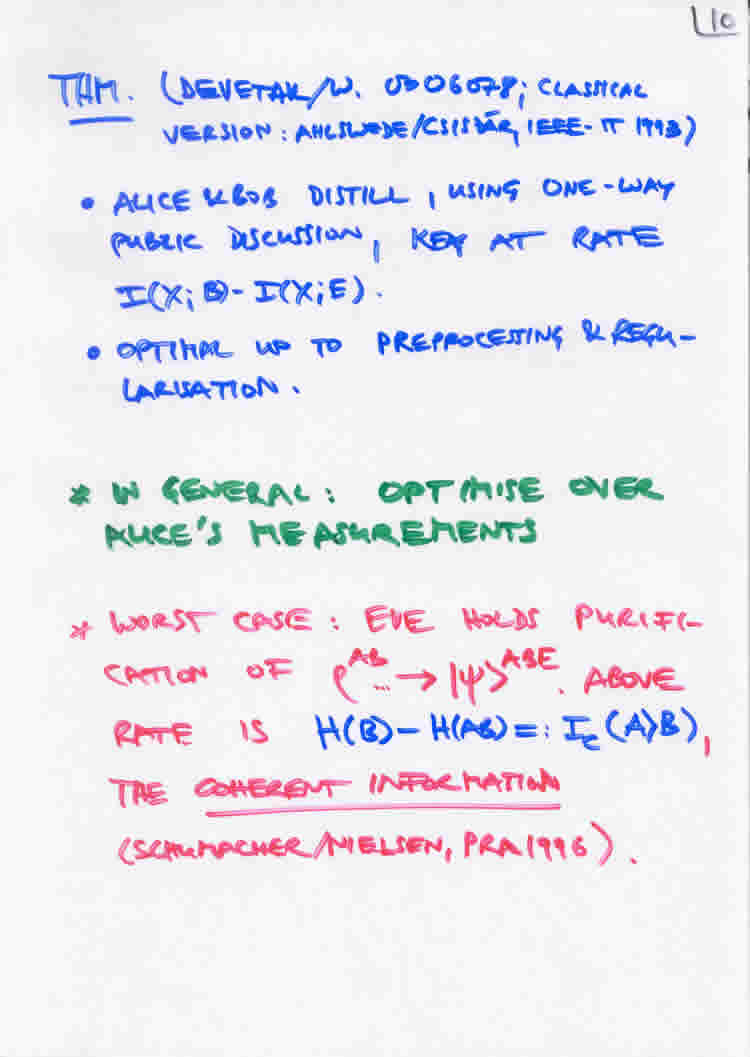 10
THM. (DEVETAK/W. 0306078; CLASSICAL
VERSION: AHLSWEDE/CSISZÁR, IEEE-IT 1993)
• ALICE & BOB DISTILL, USING ONE-WAY
PUBLIC DISCUSSION, KEY AT RATE
I(X;B)-I(X;E).
• OPTIMAL UP TO PREPROCESSING & REGU-
LARISATION.
* IN GENERAL: OPTIMISE OVER
ALICE'S MEASUREMENTS
* WORST CASE: EVE HOLDS PURIFI-
CATION OF ρ^AB ... → |ψ⟩^ABE. ABOVE
RATE IS H(B)-H(AB)=: I_c(A⟩B),
THE COHERENT INFORMATION
(SCHUMACHER/NIELSEN, PRA 1996).